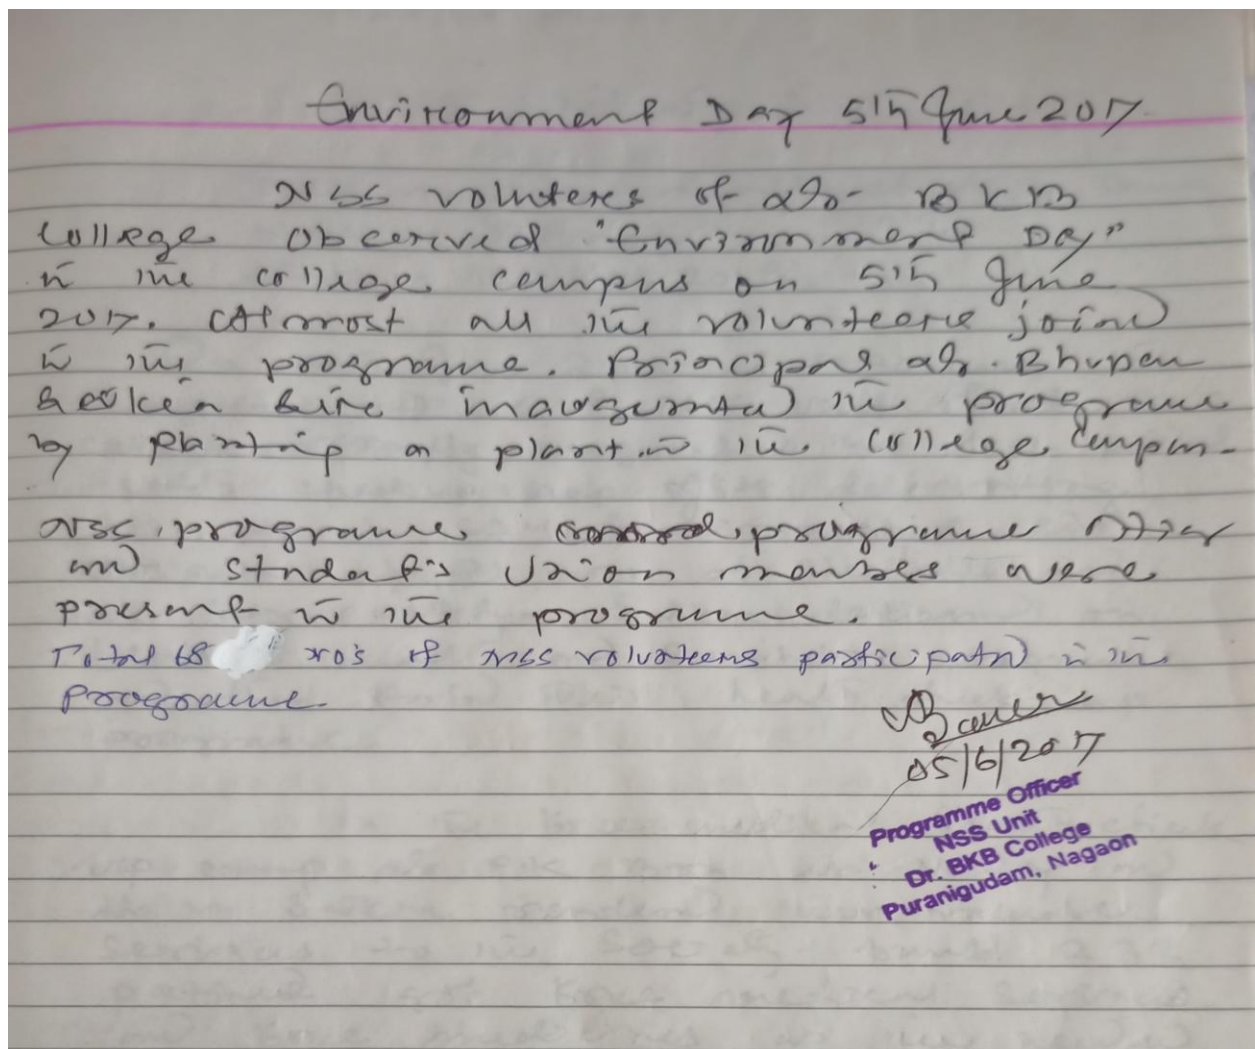 Environment Day 5th June 2017
NSS volunteres of Dr. BKB
College Observed "Environment Day"
in the college campus on 5th June
2017. Almost all the volunteers joind
in the programme. Principal Dr. Bhupen
Saikia Sire inaugurated the programe
by planting a plant in the college campus.
NSS, programme programme Officer
and Student's Union members were
present in the programme.
Total 68 no's of NSS volunteers participated in the
Programme.
05/6/2017
Programme Officer
NSS Unit
Dr. BKB College
Puranigudam, Nagaon